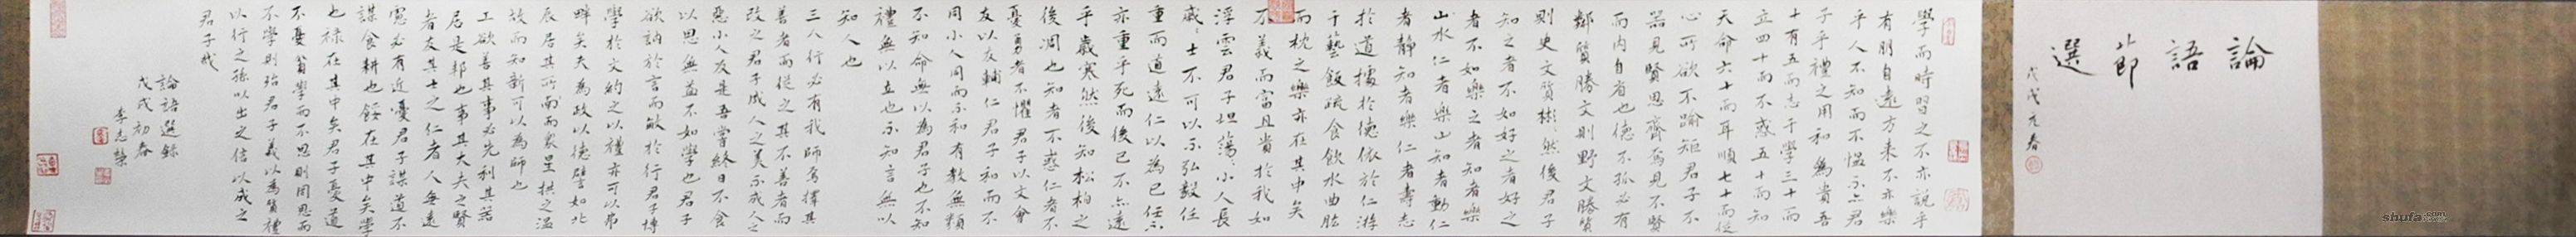 論語節選
戊戌元春
學而時習之不亦說乎
有朋自遠方來不亦樂
乎人不知而不慍不亦君
子乎禮之用和為貴吾
十有五而志于學三十而
立四十而不惑五十而知
天命六十而耳順七十而從
心所欲不踰矩君子不
器見賢思齊焉見不賢
而內自省也德不孤必有
鄰質勝文則野文勝質
則史文質彬彬然後君子
知之者不如好之者好之
者不如樂之者知者樂
山水仁者樂山知者動仁
者靜知者樂仁者壽志
於道據於德依於仁游
于藝飯疏食飲水曲肱
而枕之樂亦在其中矣
不義而富且貴於我如
浮雲君子坦蕩蕩小人長
戚戚士不可以不弘毅任
重而道遠仁以為己任不
亦重乎死而後已不亦遠
乎歲寒然後知松柏之
後凋也知者不惑仁者不
憂勇者不懼君子以文會
友以友輔仁君子和而不
同小人同而不和有教無類
不知命無以為君子也不知
禮無以立也不知言無以
知人也
三人行必有我師焉擇其
善者而從之其不善者而
改之君子成人之美不成人之
惡小人反是吾嘗終日不食
以思無益不如學也君子
欲訥於言而敏於行君子博
學於文約之以禮亦可以弗
畔矣夫為政以德譬如北
辰居其所而眾星拱之溫
故而知新可以為師也
工欲善其事必先利其器
居是邦也事其大夫之賢
者友其士之仁者人無遠
慮必有近憂君子謀道不
謀食耕也餒在其中矣學
也祿在其中矣君子憂道
不憂貧學而不思則罔思而
不學則殆君子義以為質禮
以行之孫以出之信以成之
君子哉
論語選錄
戊戌初春
李志榮
shufa.com